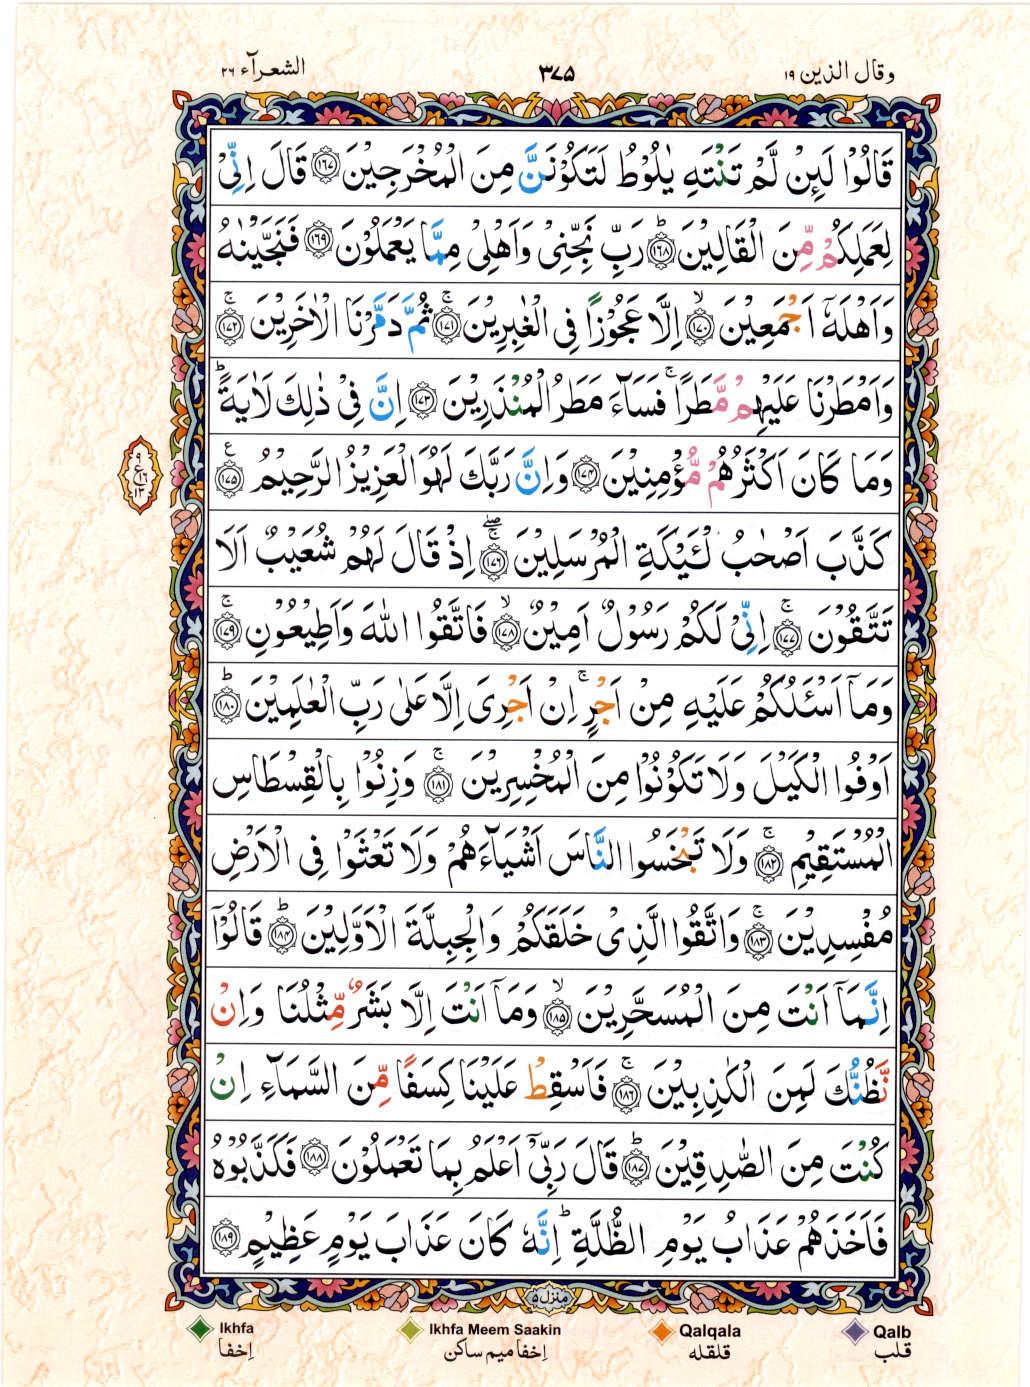 وقال الذين ١٩
٣٧٥
الشعرآء ٢٦
قَالُوْا لَىِٕنْ لَّمْ تَنْتَهِ يٰلُوْطُ لَتَكُوْنَنَّ مِنَ الْمُخْرَجِيْنَ ۝١٦٧ قَالَ اِنِّيْ
لِعَمَلِكُمْ مِّنَ الْقَالِيْنَ ۝١٦٨ؕ رَبِّ نَجِّنِيْ وَاَهْلِيْ مِمَّا يَعْمَلُوْنَ ۝١٦٩ فَنَجَّيْنٰهُ
وَاَهْلَهٗۤ اَجْمَعِيْنَ ۝١٧٠ۙ اِلَّا عَجُوْزًا فِي الْغٰبِرِيْنَ ۝١٧١ۚ ثُمَّ دَمَّرْنَا الْاٰخَرِيْنَ ۝١٧٢ۚ
وَاَمْطَرْنَا عَلَيْهِمْ مَّطَرًا ۚ فَسَآءَ مَطَرُ الْمُنْذَرِيْنَ ۝١٧٣ اِنَّ فِيْ ذٰلِكَ لَاٰيَةً ؕ
وَمَا كَانَ اَكْثَرُهُمْ مُّؤْمِنِيْنَ ۝١٧٤ وَاِنَّ رَبَّكَ لَهُوَ الْعَزِيْزُ الرَّحِيْمُ ۝١٧٥ ع
٩
ع ١٦
١٣
كَذَّبَ اَصْحٰبُ لْـَٔيْكَةِ الْمُرْسَلِيْنَ ۝١٧٦ۖۚ اِذْ قَالَ لَهُمْ شُعَيْبٌ اَلَا
تَتَّقُوْنَ ۝١٧٧ۚ اِنِّيْ لَكُمْ رَسُوْلٌ اَمِيْنٌ ۝١٧٨ۙ فَاتَّقُوا اللّٰهَ وَاَطِيْعُوْنِ ۝١٧٩ۚ
وَمَاۤ اَسْـَٔلُكُمْ عَلَيْهِ مِنْ اَجْرٍ ۚ اِنْ اَجْرِيَ اِلَّا عَلٰى رَبِّ الْعٰلَمِيْنَ ۝١٨٠ؕ
اَوْفُوا الْكَيْلَ وَلَا تَكُوْنُوْا مِنَ الْمُخْسِرِيْنَ ۝١٨١ۚ وَزِنُوْا بِالْقِسْطَاسِ
الْمُسْتَقِيْمِ ۝١٨٢ۚ وَلَا تَبْخَسُوا النَّاسَ اَشْيَآءَهُمْ وَلَا تَعْثَوْا فِي الْاَرْضِ
مُفْسِدِيْنَ ۝١٨٣ۚ وَاتَّقُوا الَّذِيْ خَلَقَكُمْ وَالْجِبِلَّةَ الْاَوَّلِيْنَ ۝١٨٤ؕ قَالُوْۤا
اِنَّمَاۤ اَنْتَ مِنَ الْمُسَحَّرِيْنَ ۝١٨٥ۙ وَمَاۤ اَنْتَ اِلَّا بَشَرٌ مِّثْلُنَا وَاِنْ
نَّظُنُّكَ لَمِنَ الْكٰذِبِيْنَ ۝١٨٦ۚ فَاَسْقِطْ عَلَيْنَا كِسَفًا مِّنَ السَّمَآءِ اِنْ
كُنْتَ مِنَ الصّٰدِقِيْنَ ۝١٨٧ؕ قَالَ رَبِّيْۤ اَعْلَمُ بِمَا تَعْمَلُوْنَ ۝١٨٨ فَكَذَّبُوْهُ
فَاَخَذَهُمْ عَذَابُ يَوْمِ الظُّلَّةِ ؕ اِنَّهٗ كَانَ عَذَابَ يَوْمٍ عَظِيْمٍ ۝١٨٩
منزل ٥
Ikhfa Ikhfa Meem Saakin Qalqala Qalb
اِخفا اِخفا ميم ساكن قلقله قلب